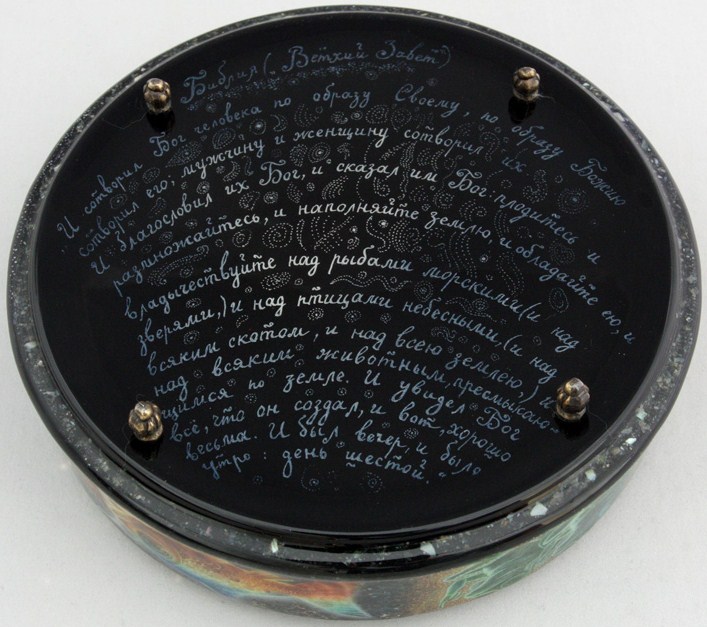 Библия (Ветхий Завет)
"И сотворил Бог человека по образу Своему, по образу Божию
сотворил его; мужчину и женщину сотворил их.
И благословил их Бог, и сказал им Бог: плодитесь и
размножайтесь, и наполняйте землю, и обладайте ею, и
владычествуйте над рыбами морскими (и над
зверями,) и над птицами небесными, (и над
всяким скотом, и над всею землею,) и
над всяким животным, пресмыкаю-
щимся по земле. И увидел Бог
всё, что он создал, и вот, хорошо
весьма. И был вечер, и было
утро: день шестой."